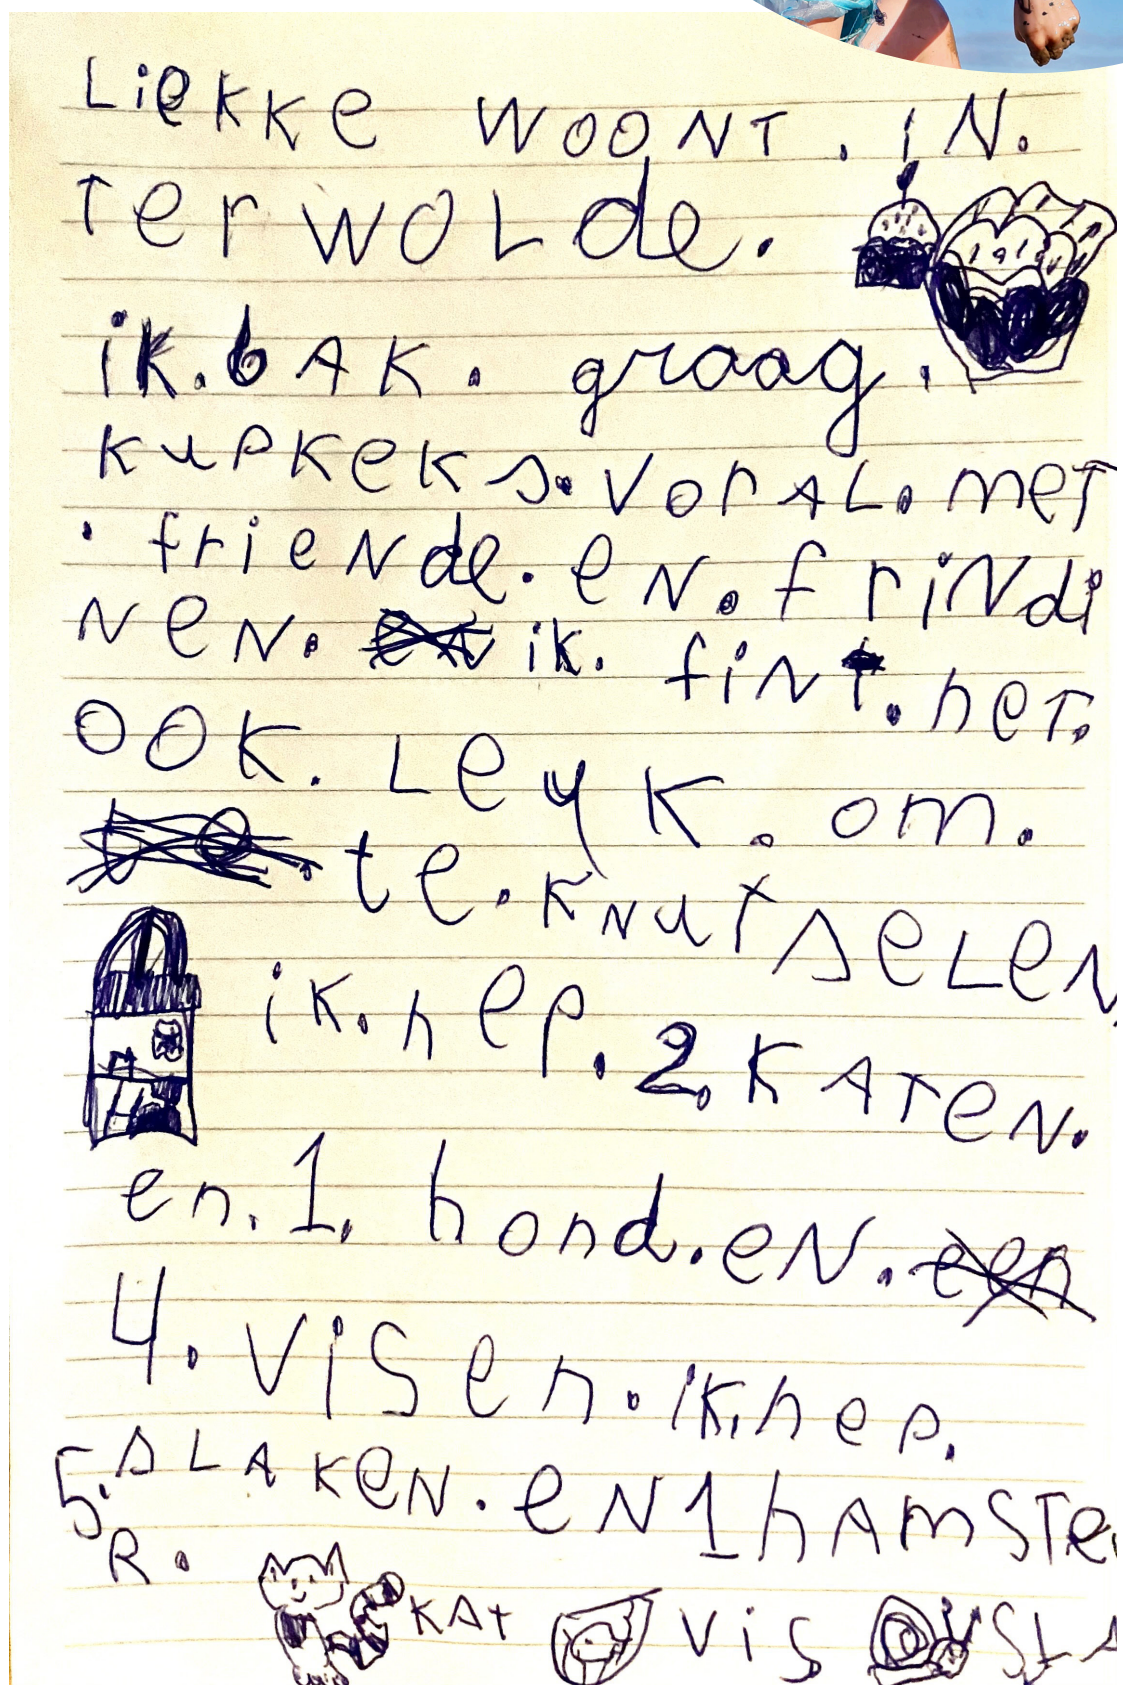 Liekke WOONT. iN.
TerWOLde.
ik. bAK. graag.
KupKeKs. VorAL. meT
. frieNde. eN. friNdi
NeN. ik. fiNt. heT.
OOK. LeyK. om.
te. KNuTSeLeN.
iK. hep. 2. KATeN.
en. 1. hond. eN. een
4. ViSen. iK. hep.
5. SLAKeN. eN 1 hAmSTe
R.
KAt ViS SLA